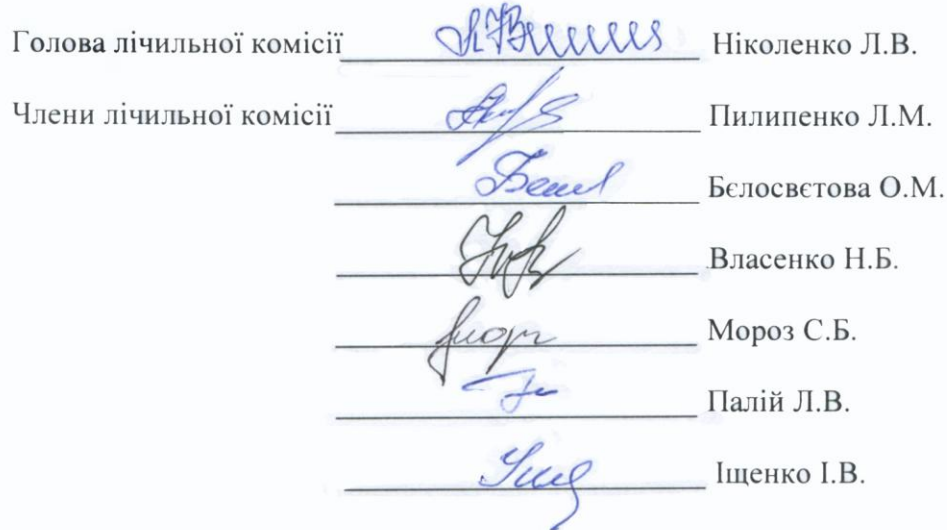 Голова лічильної комісії Ніколенко Л.В.
Члени лічильної комісії Пилипенко Л.М.
Бєлосвєтова О.М.
Власенко Н.Б.
Мороз С.Б.
Палій Л.В.
Іщенко І.В.